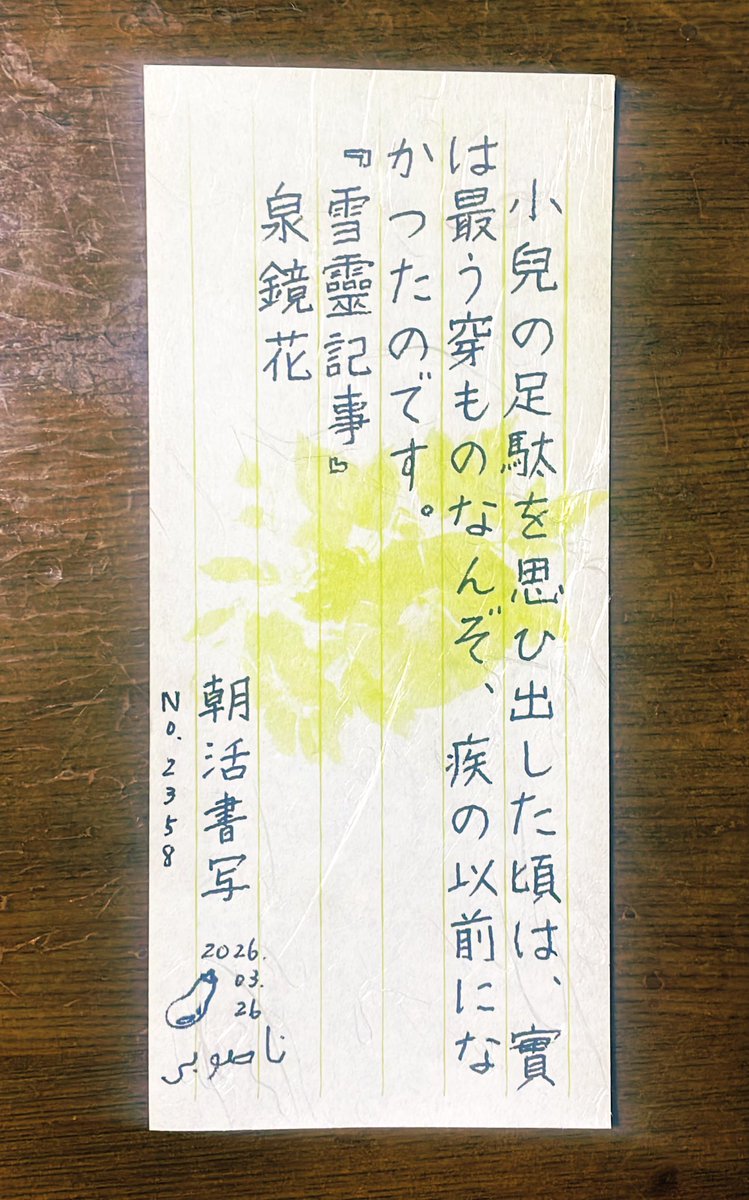 小兒の足駄を思ひ出した頃は、實
は最う穿ものなんぞ、疾の以前にな
かつたのです。
『雪靈記事』
泉鏡花
朝活書写
No.2358
2026.
03.
26